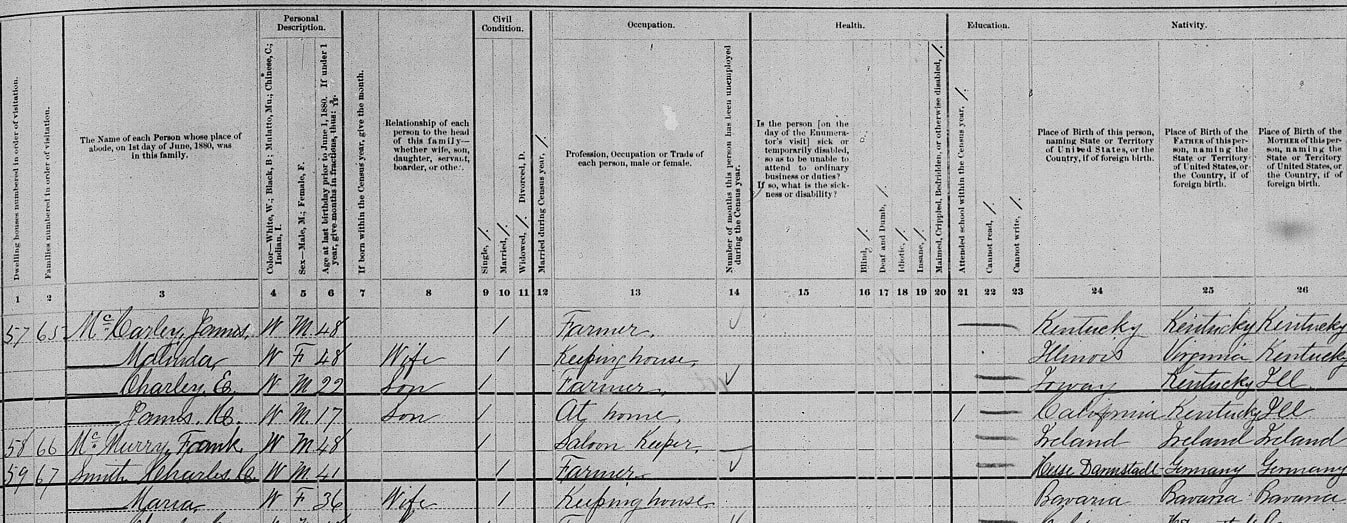 Personal Description. Civil Condition. Occupation. Health. Education. Nativity.
Dwelling houses numbered in order of visitation.
Families numbered in order of visitation.
The Name of each Person whose place of abode, on 1st day of June, 1880, was in this family.
Color—White, W.; Black, B.; Mulatto, Mu.; Chinese, C.; Indian, I.
Sex—Male, M.; Female, F.
Age at last birthday prior to June 1, 1880. If under 1 year, give months in fractions, thus: 3/12.
If born within the Census year, give the month.
Relationship of each person to the head of this family—whether wife, son, daughter, servant, boarder, or other.
Single, /.
Married, /.
Widowed, /. Divorced, D.
Married during Census year, /.
Profession, Occupation or Trade of each person, male or female.
Number of months this person has been unemployed during the Census year.
Is the person [on the day of the Enumerator's visit] sick or temporarily disabled, so as to be unable to attend to ordinary business or duties? If so, what is the sickness or disability?
Blind, /.
Deaf and Dumb, /.
Idiotic, /.
Insane, /.
Maimed, Crippled, Bedridden, or otherwise disabled, /.
Attended school within the Census year, /.
Cannot read, /.
Cannot write, /.
Place of Birth of this person, naming State or Territory of United States, or the Country, if of foreign birth.
Place of Birth of the FATHER of this person, naming the State or Territory of United States, or the Country, if of foreign birth.
Place of Birth of the MOTHER of this person, naming the State or Territory of United States, or the Country, if of foreign birth.
1 2 3 4 5 6 7 8 9 10 11 12 13 14 15 16 17 18 19 20 21 22 23 24 25 26
57 65 McCarley, James, W M. 48 / Farmer, Kentucky Kentucky Kentucky
Malinda, W F. 48 Wife / Keeping house, Illinois Virginia Kentucky
Charley, E. W M. 22 Son / Farmer, Ioway Kentucky Ill
James. W M. 17 Son / At home, / California Kentucky Ill
58 66 McMurry, Frank W M. 48 / Saloon Keeper, Ireland Ireland Ireland
59 67 Smith Charles C. W M. 41 / Farmer Hesse Darmstadt Germany Germany
Maria, W F 36 Wife / Keeping house Bavaria Bavaria Bavaria